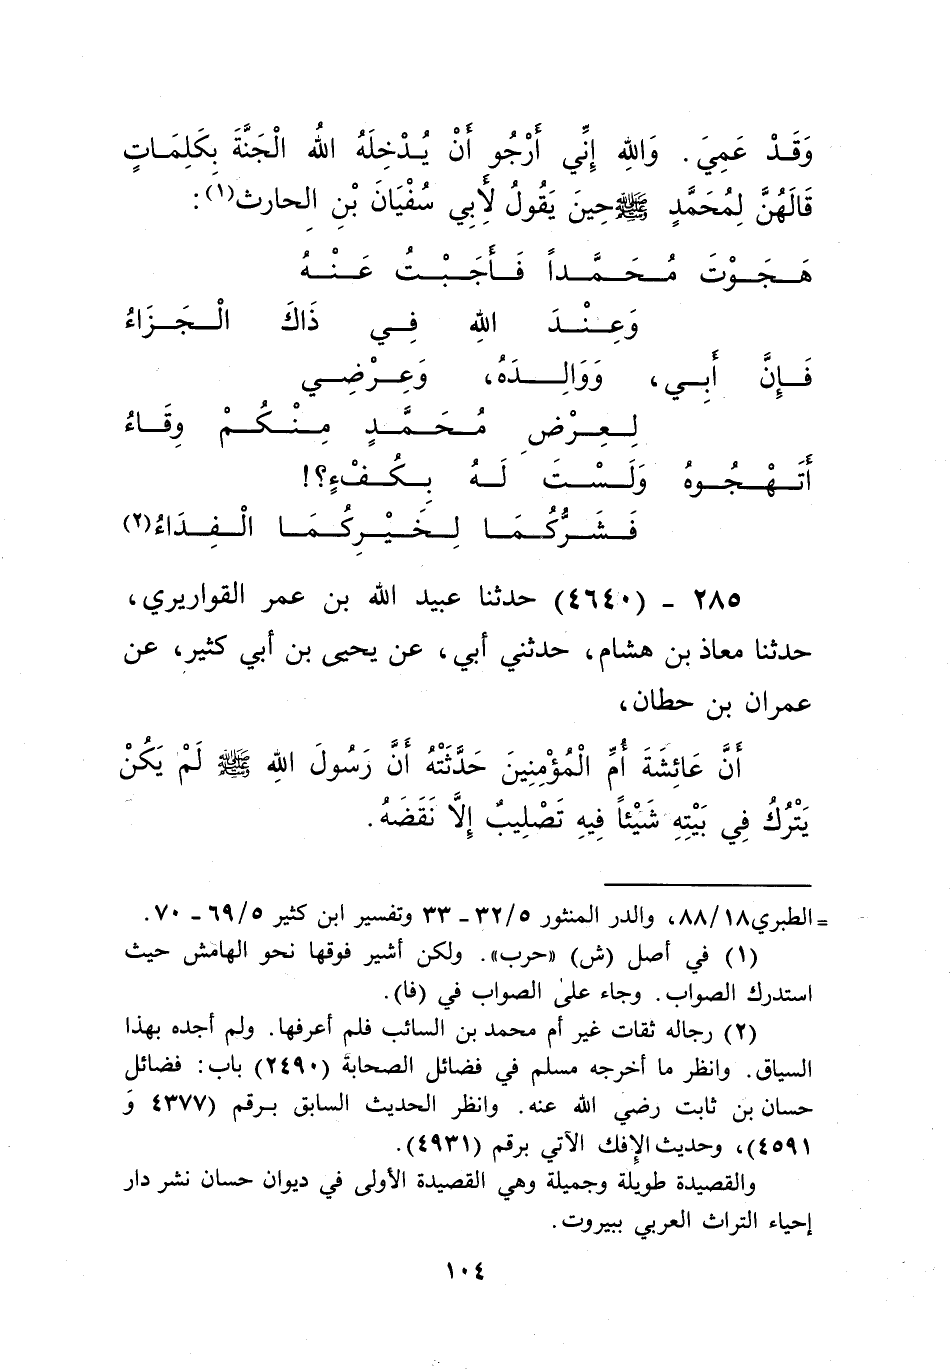 وَقَدْ عَمِيَ. وَاللهِ إِنِّي أَرْجُو أَنْ يُدْخِلَهُ اللهُ الْجَنَّةَ بِكَلِمَاتٍ
قَالَهُنَّ لِمُحَمَّدٍ ﷺ حِينَ يَقُولُ لِأَبِي سُفْيَانَ بْنِ الحارِث(١):
هَـجَـوْتَ مُـحَـمَّـداً فَـأَجَـبْـتُ عَـنْـهُ
وَعِـنْـدَ اللهِ فِـي ذَاكَ الْـجَـزَاءُ
فَـإِنَّ أَبِـي، وَوَالِـدَهُ، وَعِـرْضِـي
لِـعِـرْضِ مُـحَـمَّـدٍ مِـنْـكُـمْ وِقَـاءُ
أَتَـهْـجُـوهُ وَلَـسْـتَ لَـهُ بِـكُـفْءٍ؟!
فَـشَـرُّكُـمَـا لِـخَـيْـرِكُـمَـا الْـفِـدَاءُ(٢)
٢٨٥ - (٤٦٤٠) حدثنا عبيد الله بن عمر القواريري،
حدثنا معاذ بن هشام، حدثني أبي، عن يحيى بن أبي كثير، عن
عمران بن حطان،
أَنَّ عَائِشَةَ أُمَّ الْمُؤْمِنِينَ حَدَّثَتْهُ أَنَّ رَسُولَ اللهِ ﷺ لَمْ يَكُنْ
يَتْرُكُ فِي بَيْتِهِ شَيْئاً فِيهِ تَصْلِيبٌ إِلاَّ نَقَضَهُ.
= الطبري ٨٨/١٨، والدر المنثور ٣٢/٥ - ٣٣ وتفسير ابن كثير ٦٩/٥ - ٧٠.
(١) في أصل (ش) «حرب». ولكن أشير فوقها نحو الهامش حيث
استدرك الصواب. وجاء على الصواب في (فا).
(٢) رجاله ثقات غير أم محمد بن السائب فلم أعرفها. ولم أجده بهذا
السياق. وانظر ما أخرجه مسلم في فضائل الصحابة (٢٤٩٠) باب: فضائل
حسان بن ثابت رضي الله عنه. وانظر الحديث السابق بـرقم (٤٣٧٧ وَ
٤٥٩١)، وحديث الإفك الآتي برقم (٤٩٣١).
والقصيدة طويلة وجميلة وهي القصيدة الأولى في ديوان حسان نشر دار
إحياء التراث العربي ببيروت.
١٠٤